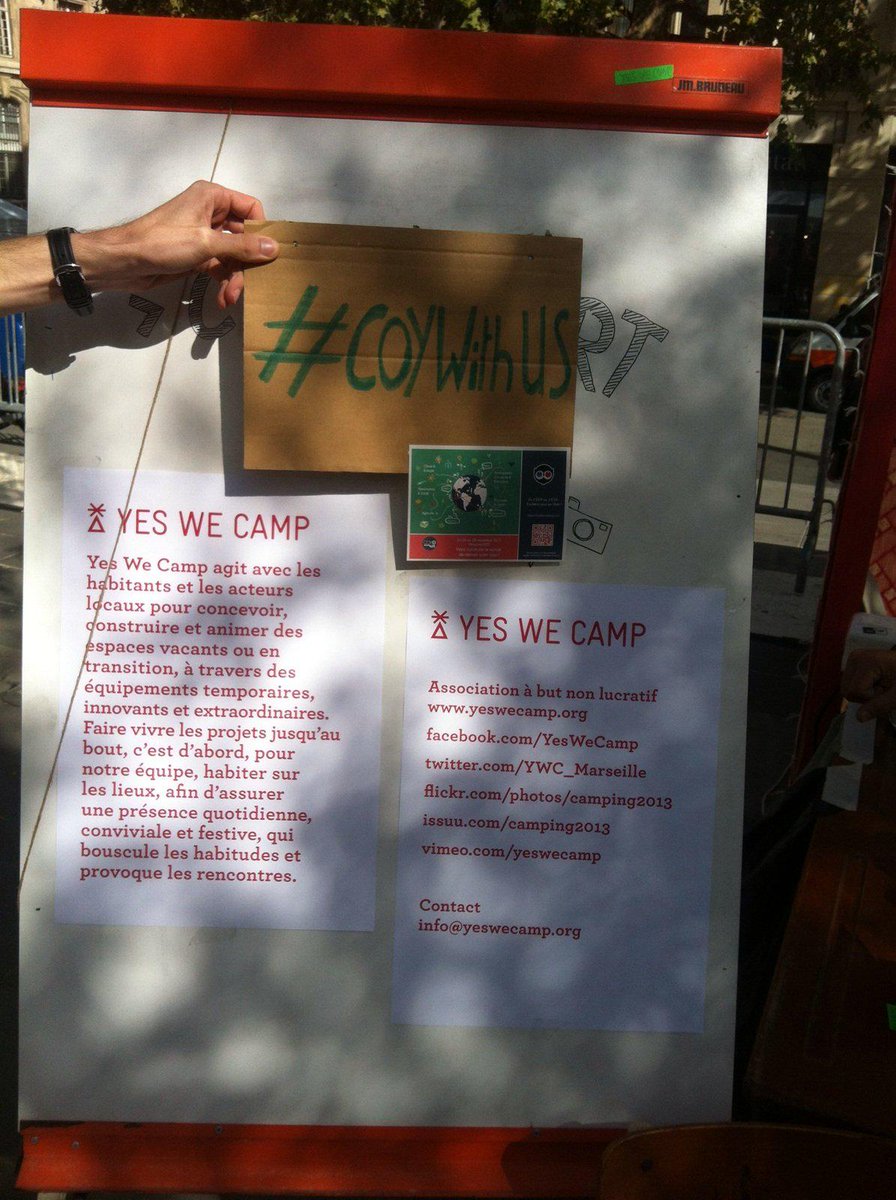 YES WE CAMP
JM.BRUDEAU
RT
#COYWithUS
YES WE CAMP
Yes We Camp agit avec les
habitants et les acteurs
locaux pour concevoir,
construire et animer des
espaces vacants ou en
transition, à travers des
équipements temporaires,
innovants et extraordinaires.
Faire vivre les projets jusqu'au
bout, c'est d'abord, pour
notre équipe, habiter sur
les lieux, afin d'assurer
une présence quotidienne,
conviviale et festive, qui
bouscule les habitudes et
provoque les rencontres.
YES WE CAMP
Association à but non lucratif
www.yeswecamp.org
facebook.com/YesWeCamp
twitter.com/YWC_Marseille
flickr.com/photos/camping2013
issuu.com/camping2013
vimeo.com/yeswecamp
Contact
info@yeswecamp.org